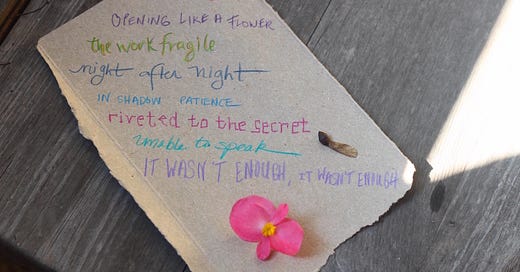 OPENING LIKE A FLOWER
the work fragile
night after night
IN SHADOW PATIENCE
riveted to the secret
unable to speak
IT WASN'T ENOUGH, IT WASN'T ENOUGH